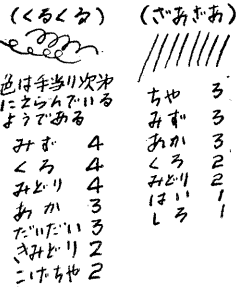 (くるくる)
色は手当り次第
にえらんでいる
ようである
みず 4
くろ 4
みどり 4
あか 3
だいだい 3
きみどり 2
こげちゃ 2
(ざあざあ)
ちゃ 3
みず 3
あか 3
くろ 2
みどり 2
はい 1
しろ 1